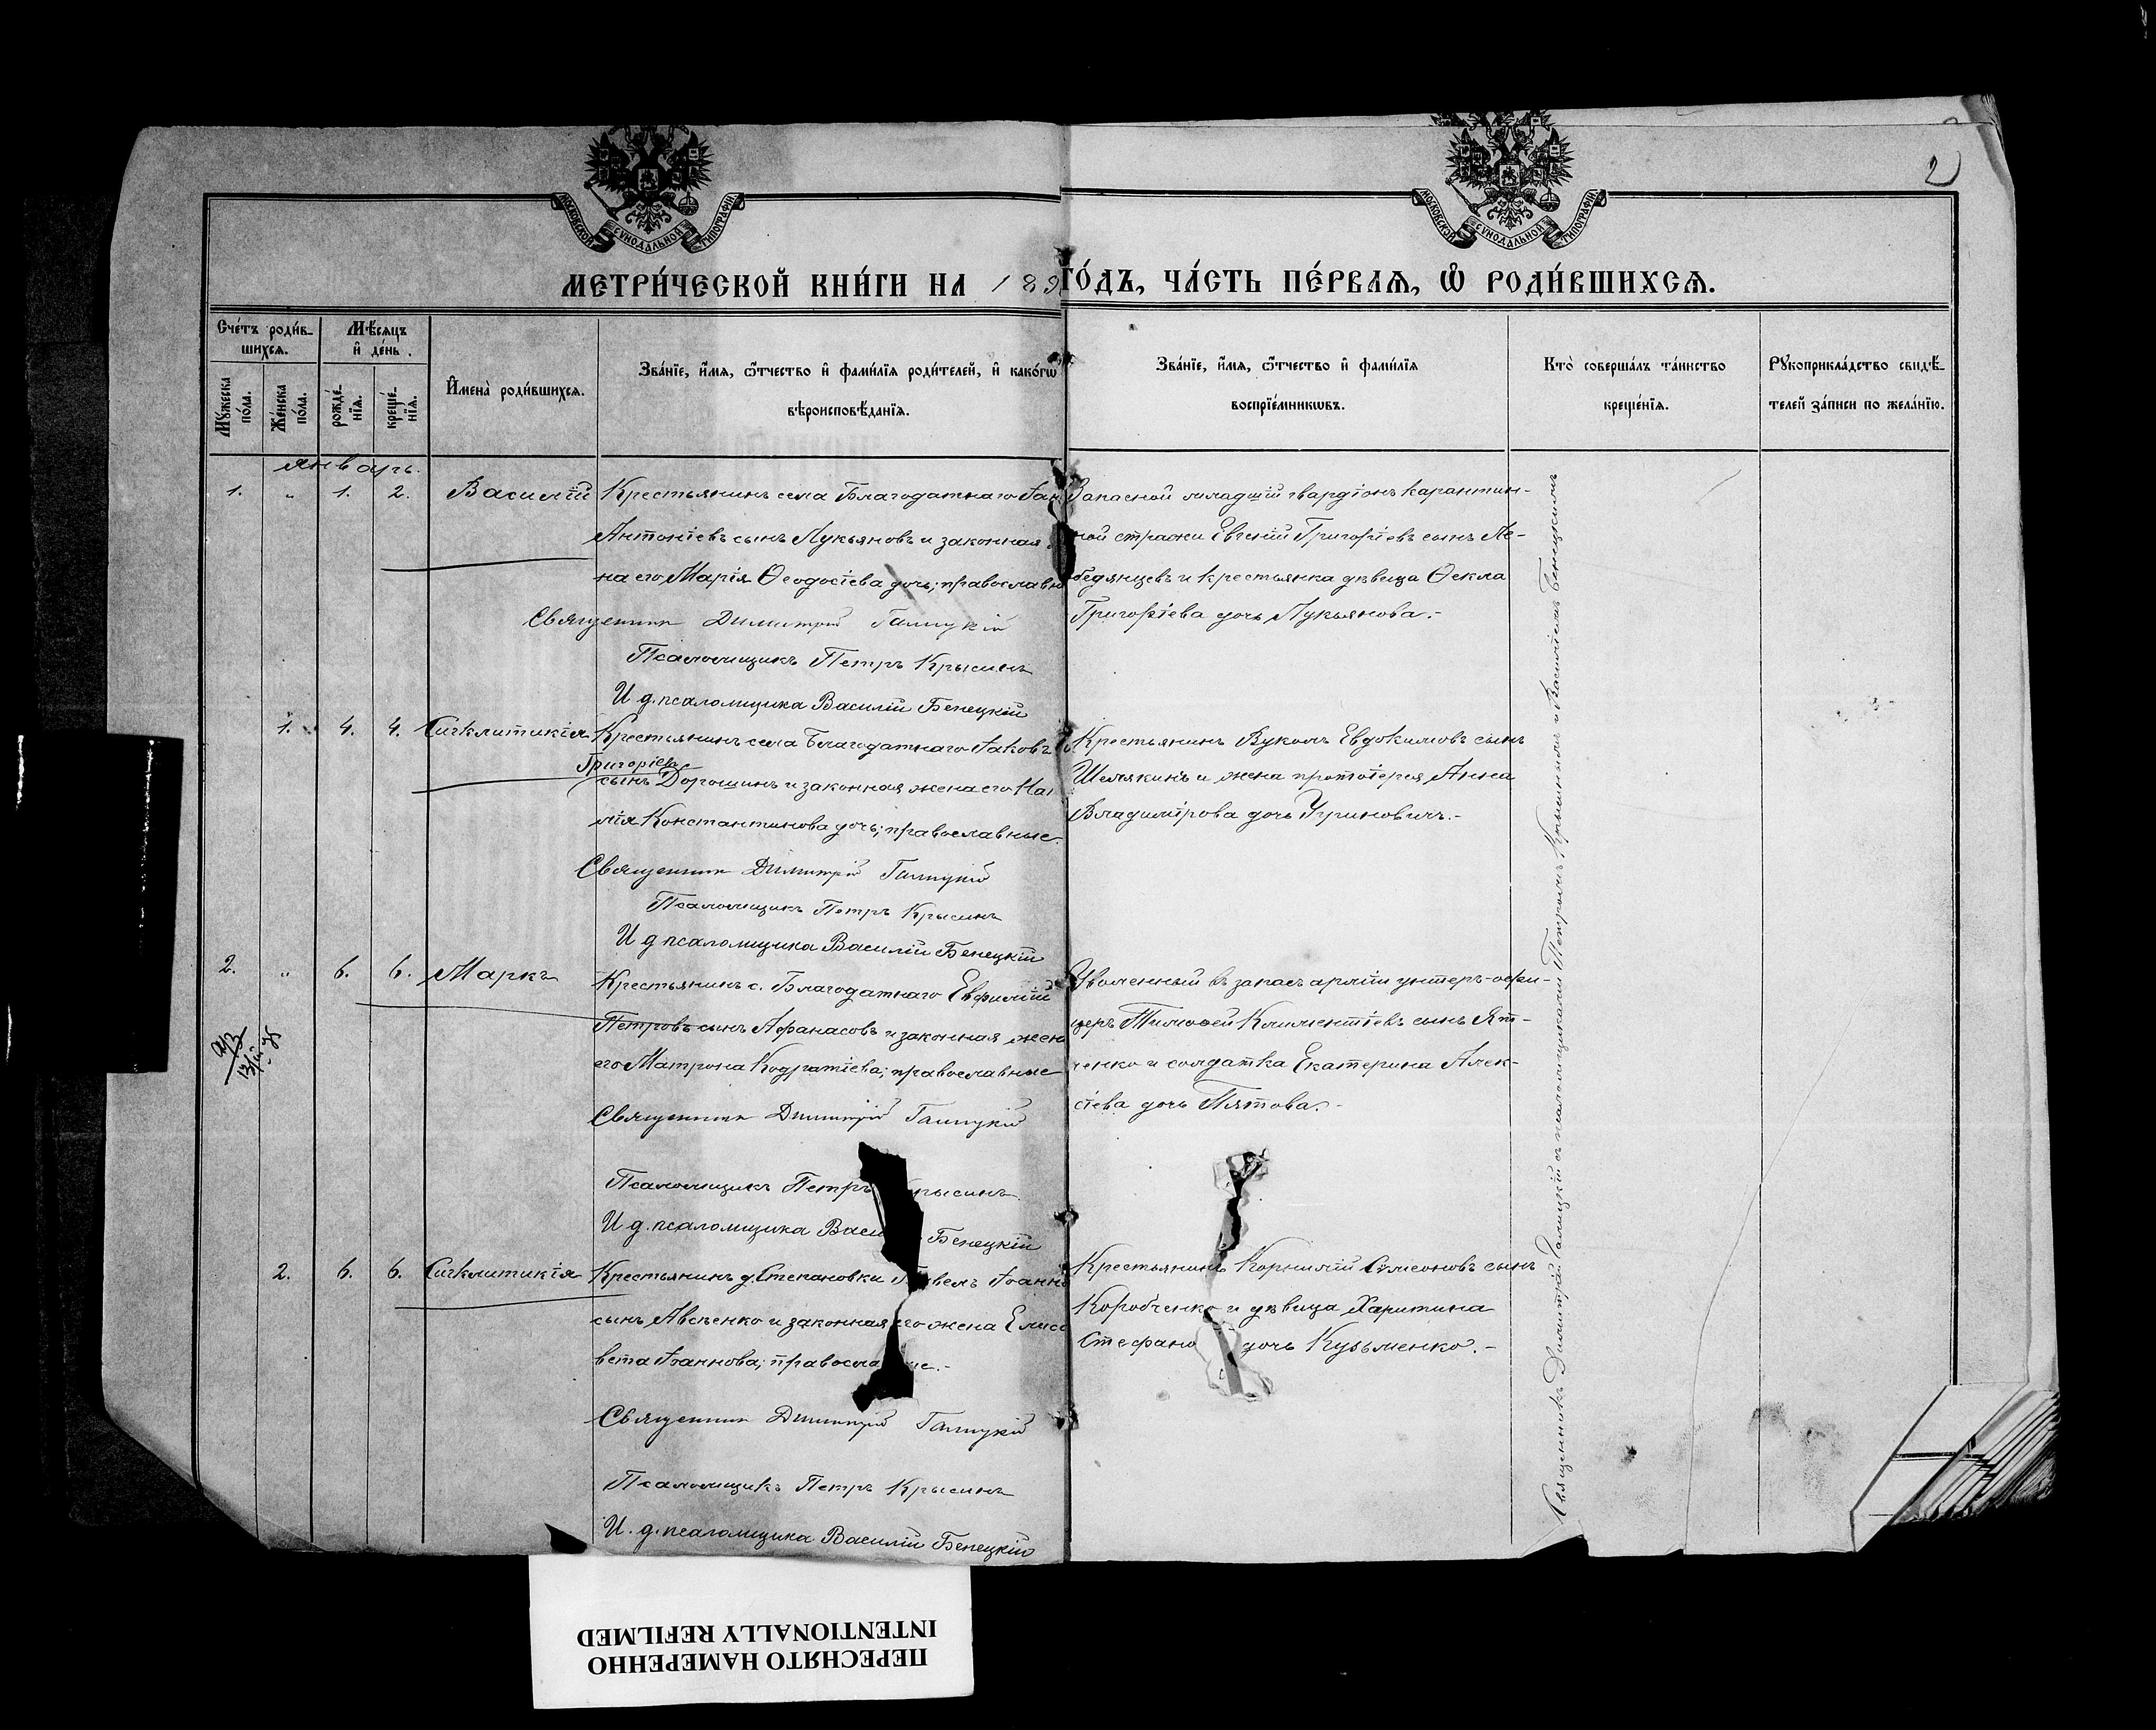 МОСКОВСКОЙ СУНОДАЛЬНОЙ ТИПОГРАФІИ
МОСКОВСКОЙ СУНОДАЛЬНОЙ ТИПОГРАФІИ
2
МЕТРИ́ЧЕСКОЙ КНИ́ГИ НА 189
ГО́ДЪ, ЧА́СТЬ ПЕ́РВАѦ, Ѡ РОДИ́ВШИХСѦ.
Сче́тъ роди́в-
шихсѧ.
Мꙋжеска по́ла.
Же́нска по́ла.
Мѣ́сѧцъ
и҆ де́нь.
рожде́-
нїѧ.
креще́-
нїѧ.
И҆мена̀ роди́вшихсѧ.
Зва́нїе, и҆́мѧ, ѻ҆́тчество и҆ фами́лїѧ роди́телей, и҆ како́гѡ
вѣроисповѣ́данїѧ.
Зва́нїе, и҆́мѧ, ѻ҆́тчество и҆ фами́лїѧ
воспрїе́мникѡвъ.
Кто̀ соверша́лъ та́инство
креще́нїѧ.
Рꙋкоприкла́дство свидѣ́-
телей за́писи по жела́нїю.
Январь.
1. „ 1. 2. Василій Крестьянинъ села Благодатнаго
Антоніевъ сынъ Лукьяновъ и законная
на его Марія Ѳеодосіева дочь; православн
Священник Димитрій Галицкій
Псаломщикъ Петръ Крысинъ
И д. псаломщика Василій Бенецкій
Запасной младшій гвардіонъ карантин-
ной стражи Евгеній Григоріевъ сынъ Ле-
бедянцевъ и крестьянка дѣвица Ѳекла
Григоріева дочь Лукьянова.-
1. 4. 4. Сигклитикія Крестьянинъ села Благодатнаго Іаковъ
Григоріевъ
сынъ Дорошинъ и законная жена его На
лія Константинова дочь; православные.
Священник Димитрій Галицкій
Псаломщикъ Петръ Крысинъ
И д псаломщика Василій Бенецкій
Крестьянинъ Вуколъ Евдокимовъ сынъ
Шелякинъ и жена протоіерея Анна
Владимірова дочь Гриновичъ.-
2. „ 6. 6. Маркъ Крестьянинъ с. Благодатнаго Евфимій
Петровъ сынъ Афанасовъ и законная жена
его Матрона Кодратіева; православные
Священник Димитрій Галицкій
Псаломщикъ Петръ Крысинъ
И д. псаломщика Васи Бенецкій
Уволенный въ запасъ арміи унтеръ-офи-
церъ Тимоѳей Климентіевъ сынъ Ят-
ченко и солдатка Екатерина Алек-
сіева дочь Пятова.-
2. 6. 6. Сигклитикія Крестьянинъ д. Степановки Павелъ Іоанн
сынъ Авсѣенко и законная его жена Елиса
вета Іоаннова; православные.-
Священник Димитрій Галицкій
Псаломщикъ Петръ Крысинъ
И. д. псаломщика Василій Бенецкій
Крестьянинъ Корнилій Сѵмеоновъ сынъ
Коробченко и дѣвица Харитина
Стефано дочь Кузьменко.-
Священникъ Димитрій Галицкій съ псаломщиками Петромъ Крысинымъ и Василіемъ Бенецкимъ
ПЕРЕСНЯТО НАМЕРЕННО
INTENTIONALLY REFILMED